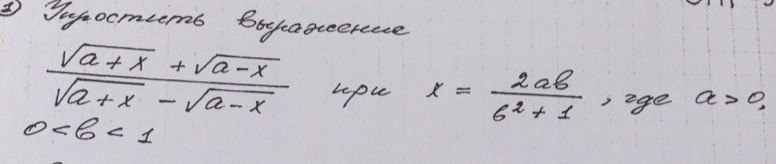 1) Упростить выражение
(√(a+x) + √(a-x)) / (√(a+x) - √(a-x)) при x = 2ab / (b²+1), где a>0,
0<b<1